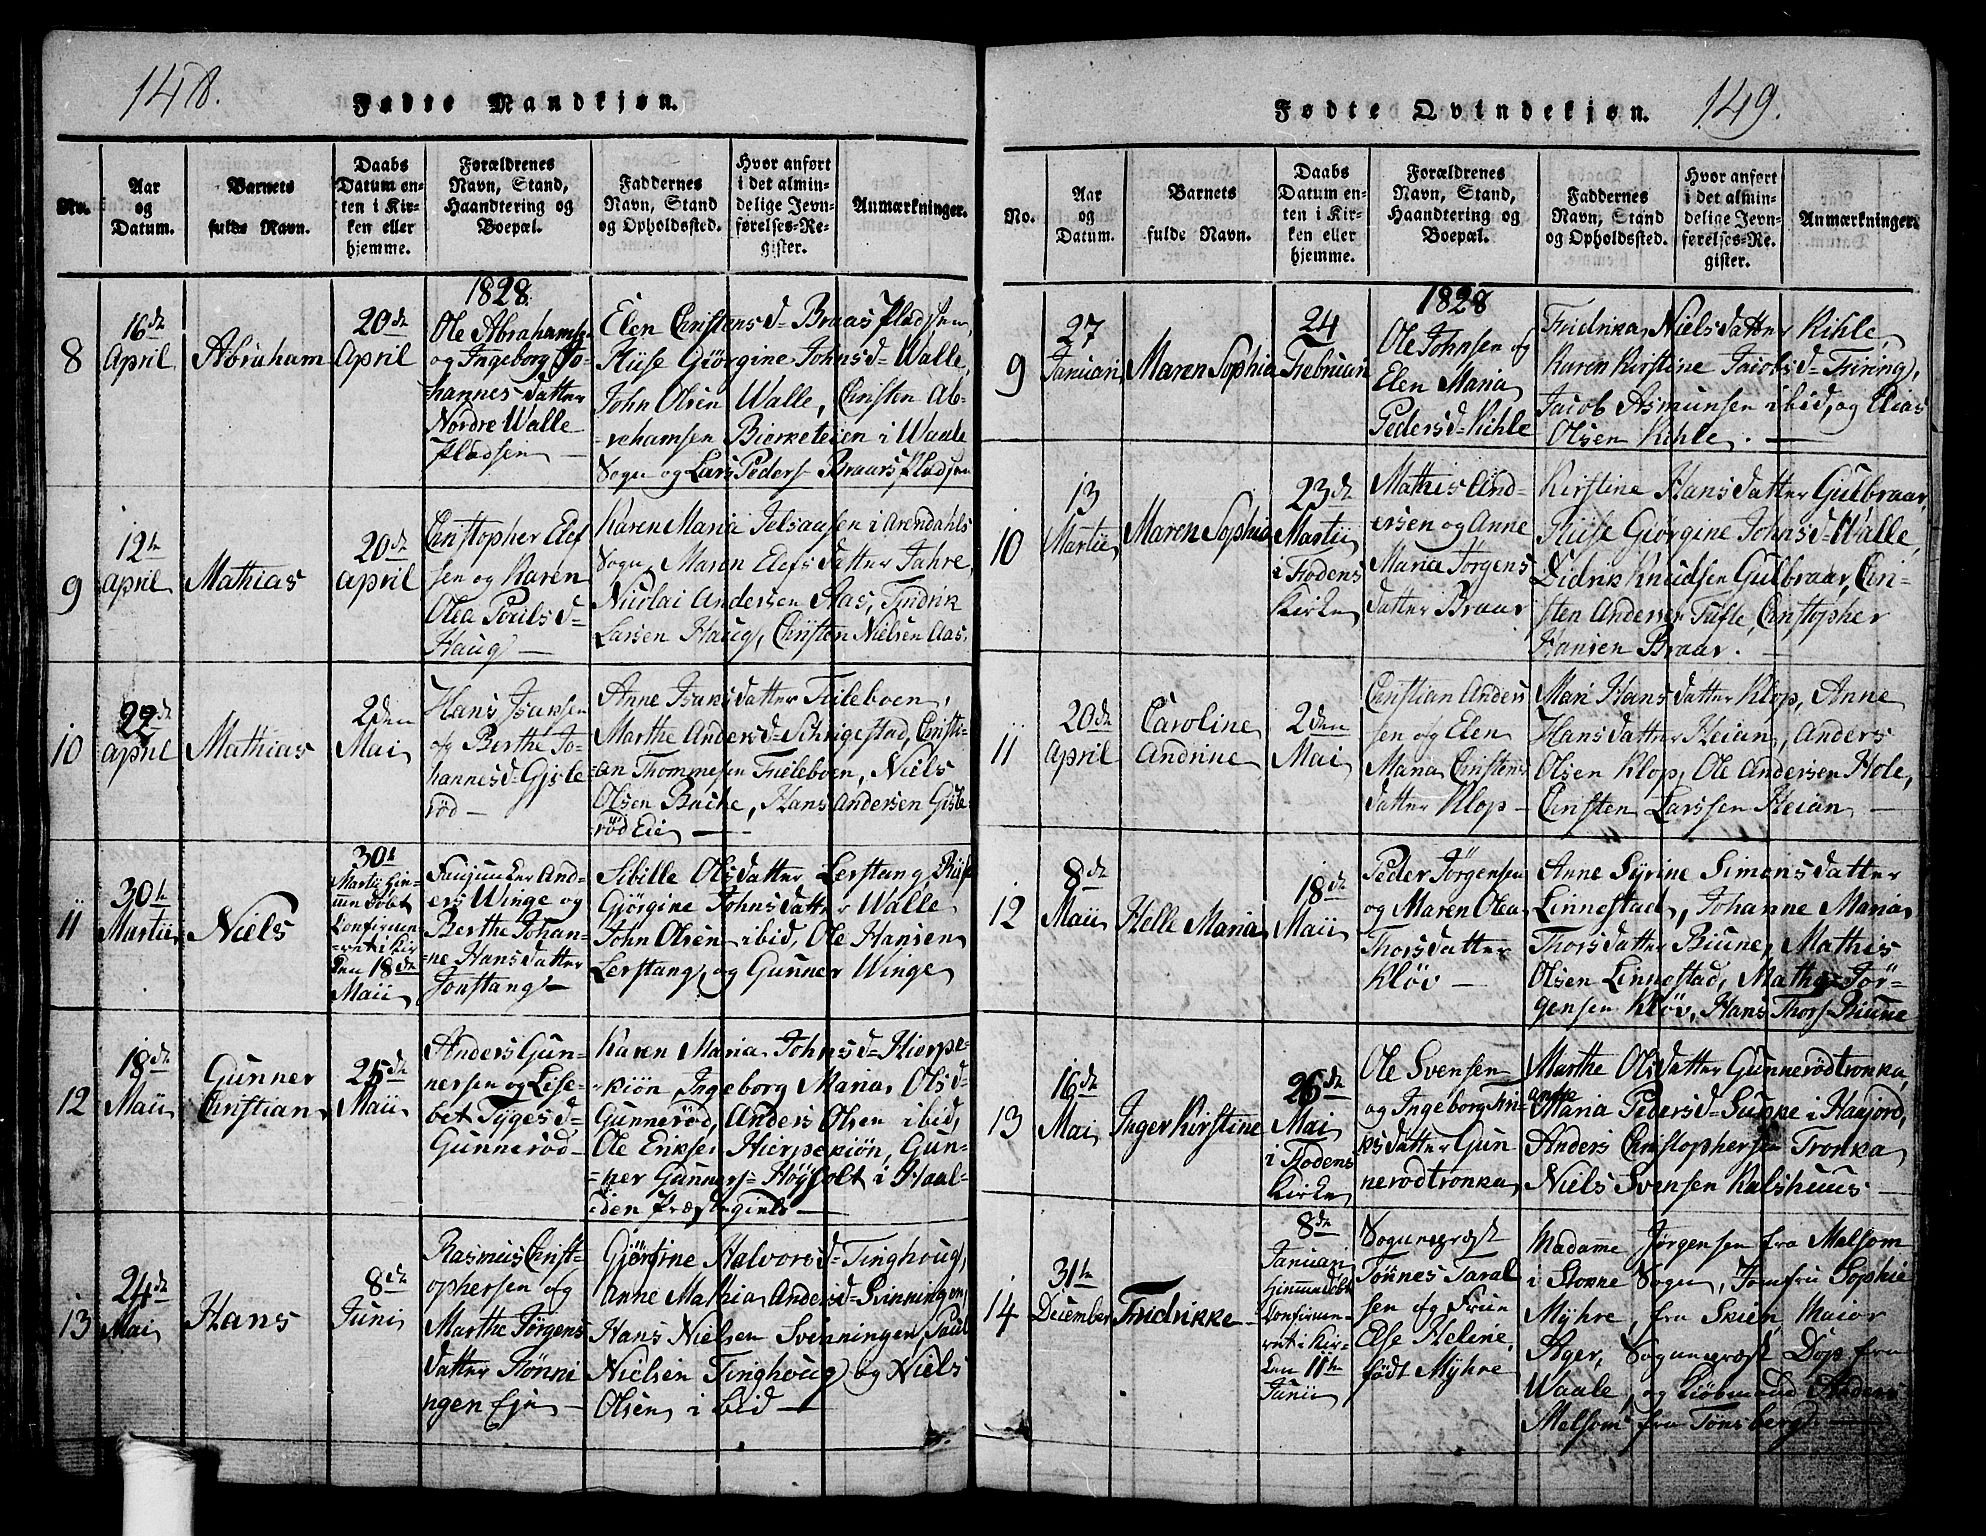 148.
Fødte Mandkjøn.
No.
Aar
og
Datum.
Barnets
fulde Navn.
Daabs
Datum en-
ten i Kir-
ken eller
hjemme.
Forældrenes
Navn, Stand,
Haandtering og
Boepæl.
Faddernes
Navn, Stand
og Opholdssted.
Hvor anført
i det almin-
delige Jevn-
førelses-Re-
gister.
Anmærkninger.
1828
8
16de
April
Abraham
20de
April
Ole Abrahams
og Ingeborg Jo-
hannes datter
Nordre Walle
Pladsen
Elen Christensd= Braas Pladsen,
Giörgine Johnsd= Walle,
John Olsen Walle, Christen Ab-
rehamsen Bierketeien i Waale
Sogn og Lars Peders= Braars Pladsen
9
12te
April
Mathias
20de
April
Christopher Elef
sen og Karen
Olea Pouls d=
Haug
Karen Maria Jelsaasen i Arendahls
Sogn, Maren Elefs datter Jahre,
Nicolai Andersen Aas, Fridrik
Larsen Haug, Christen Nielsen Aas.
10
22de
April
Mathias
2den
Mai
Hans Isaksen
og Berthe Jo-
hannesd= Gisle
röd
Anne Isaks datter Feileboen,
Marthe Andersd= Schrigestad, Christi-
an Thommesen Feileboen, Niels
Olsen Bache, Hans Andersen Gisle-
röd Eie
11
30te
Martii
Niels
30te
Martii
döbt
Confirme-
ret i Kir
den 18de
Maii
And-
ers Winge og
Berthe Johan-
ne Hansdatter
Jonstang
Sibille Olsdatter Lerstang,
Gjörgine Johnsdatter Walle
John Olsen ibid, Ole Hansen
Lerstang og Gunner Winge
12
18de
Maii
Gunner
Christian
25de
Maii
Anders Gun-
nersen og Lise-
bet Tygesd=
Gunneröd
Karen Maria Johnsd= Hierpe-
kiön, Ingeborg Maria Olsd=
Gunneröd, Anders Olsen ibid,
Ole Eriksen Hierpekiön, Gun-
ner Gunners= Höyholt i Haal-
den Præstegield
13
24de
Mai
Hans
8de
Juni
Rasmus Christ-
ophersen og
Marthe Jörgens
datter Tönni
ngen Eje
Gjörgine Halvorsd= Tinghoug,
Anne Mathia Andersd= Svinningen,
Hans Nielsen Svenningen, Paul
Nielsen Tinghoug og Niels
Olsen ibid
149.
Fødte Qvindekjøn.
No.
Aar
og
Datum.
Barnets
fulde Navn.
Daabs
Datum en-
ten i Kir-
ken eller
hjemme.
Forældrenes
Navn, Stand,
Haandtering og
Boepæl.
Faddernes
Navn, Stand
og Opholdssted.
Hvor anført
i det almin-
delige Jevn-
førelses-Re-
gister.
Anmærkninger.
1828
9
27
Januari
Maren Sophia
24
Februari
Ole Johnsen og
Elen Maria
Pedersd= Kihle
Fridrika Nielsdatter Kihle,
Karen Kirstine Jacobsd= Fziring,
Jacob Asmunsen ibid, og Elias
Olsen Kihle.
10
13
Martii
Maren Sophia
23de
Martii
i Flodens
Kirke
Mathis And-
ersen og Anne
Maria Jörgens
datter Braar
Kirstine Hans datter Gulbraar,
Giörgine Johnsd= Walle,
Didrik Knudsen Gulbraar, Chri-
sten Andersen Tufte, Christopher
Hansen Braar.
11
20de
April
Caroline
Andrine
2den
Mai
Christian Anders
sen og Elen
Maria Christens
datter Klop
Mari Hans datter Klop, Anne
Hansdatter Heian, Anders
Olsen Klop, Ole Andersen Hole,
Christen Larssen Heian
12
8de
Maii
Helle Maria
18de
Maii
Peder Jörgensen
og Maren Olea
Thorsdatter
Klöv
Anne Syrine Simons datter
Linnestad, Johanne Maria
Thorsdatter Biune, Mathis
Olsen Linnestad, Mathe Jör-
gensen Klöv, Hans Thors= Biune
13
16de
Mai
Inger Kirstine
26de
Mai
i Flodens
Kirke
Ole Svensen
og Ingeborg Fri-
ks datter Gun-
nerödtronka
Marthe Olsdatter Gunnerödtronka,
Maria Pedersd= Suppe i Haajord,
Anders Christophersen Tronka
Niels Svensen Kalshuus
14
31te
December
Fridrikke
8de
Januari
hjemmedöbt
Confirme-
ret i Kir-
ken 11te
Junii
Sognepræst
Tönnes Taral
sen og Frue
Else Helene,
födt Myhre
Madame Jörgensen fra Melsom
i Stokke Sogn, Jomfru Sophie
Myhre, fra Skien, Maior
Ager, Sognepræst Dop fra
Waale, og Kiöbmand Anders
Melsom fra Tönsberg